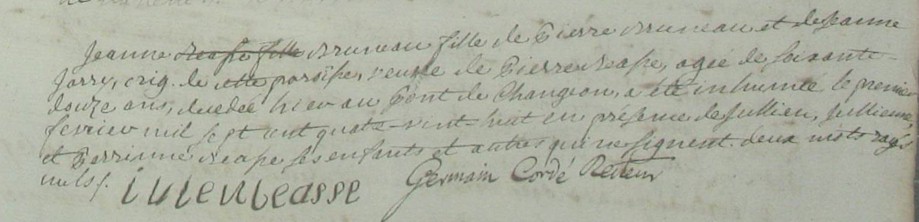 Jeanne neasse fille Bruneau fille de Pierre Bruneau et de Jeanne
Jarry, orig. de cette paroisse, veuve de Pierre Neasse, agée de soixante
douze ans, décédée hier au Pont de Changeon, a été inhumée le premier
fevrier mil sept cent quatre-vint-huit en présence de Jullien, Jullienne
et Perrinne Neasse ses enfants et autres qui ne signent. deux mots rayés
nuls.
Germain Cordé Recteur